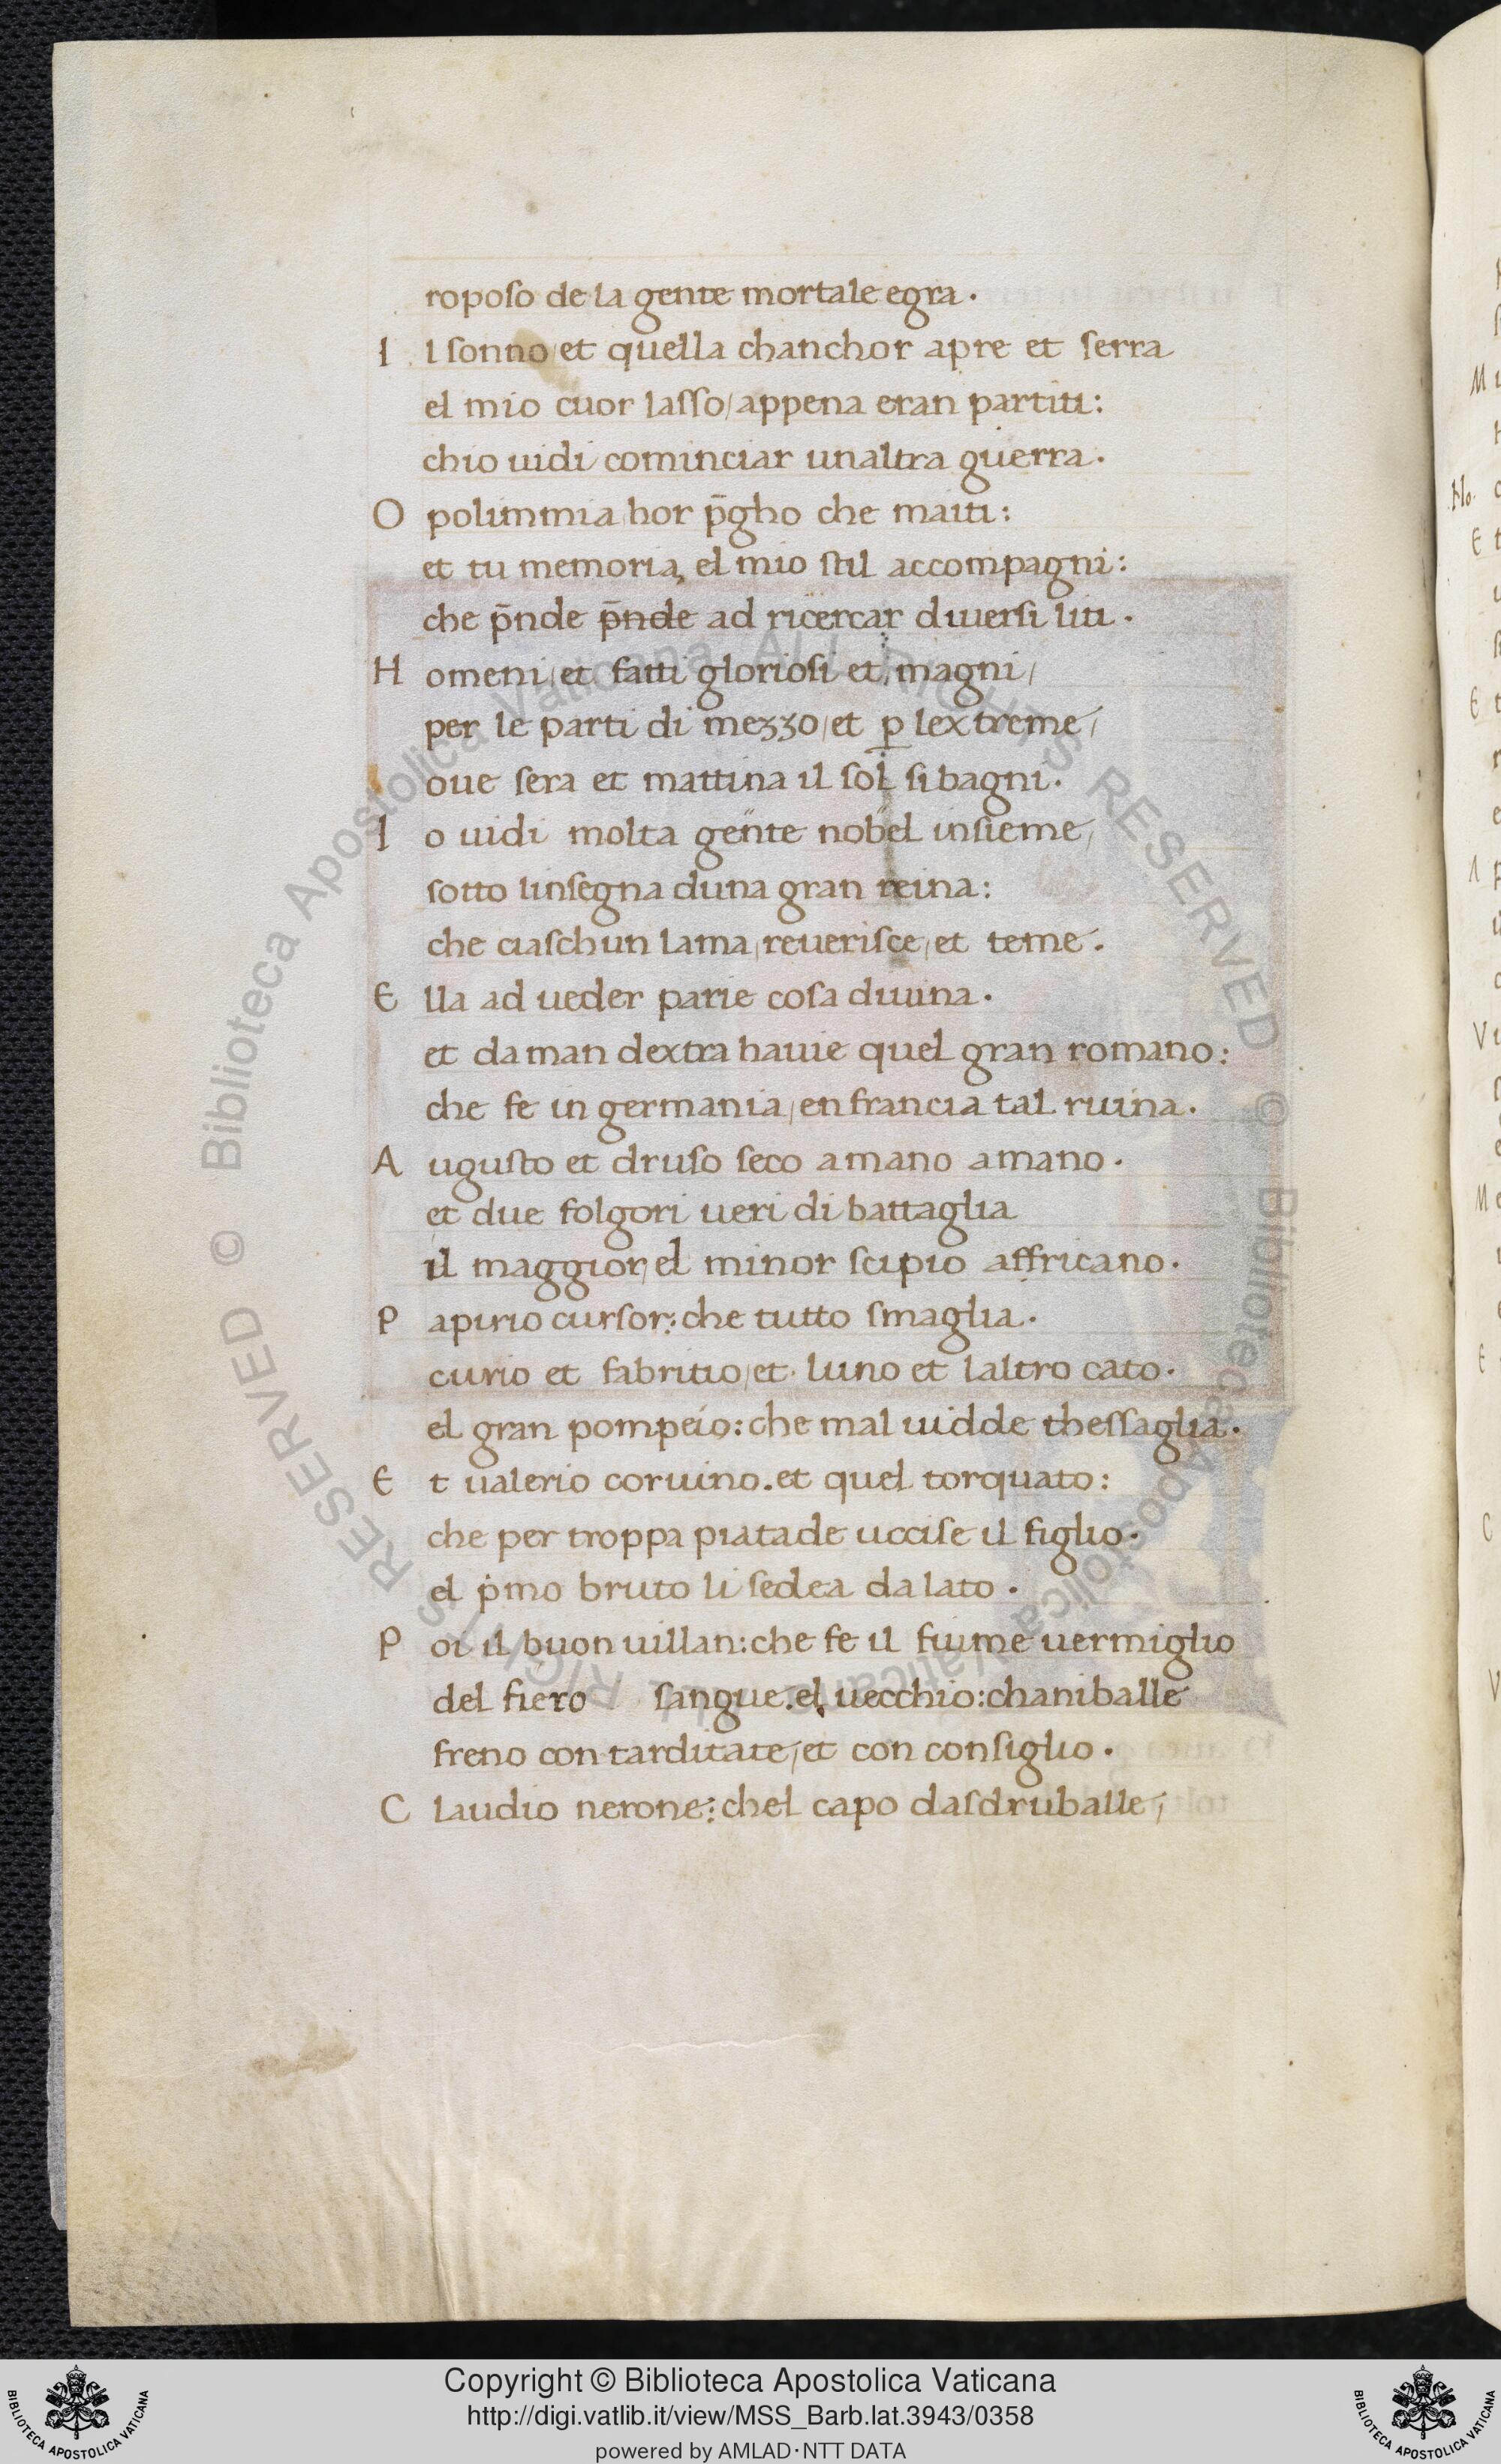 roposo de la gente mortale egra.
I l sonno/et quella chanchor apre et serra
el mio cuor lasso/appena eran partiti:
chio uidi cominciar unaltra guerra.
O polimmia hor p̄gho che maiti:
et tu memoria, el mio stil accompagni:
che p̄nde p̄nde ad ricercar diuersi liti.
H omeni/et fatti gloriosi et magni/
per le parti di mezzo/et ꝑ lextreme/
oue sera et mattina il sol si bagni.
I o uidi molta gente nobel insieme/
sotto linsegna duna gran reina:
che ciaschun lama/reuerisce/et teme.
E lla ad ueder parie cosa diuina.
et da man dextra hauie quel gran romano:
che fe in germania/en francia tal ruina.
A ugusto et druso seco a mano a mano.
et due folgori ueri di battaglia
il maggior/el minor scipio affricano.
P apirio cursor:che tutto smaglia.
curio et fabritio/et luno et laltro cato.
el gran pompeio:che mal uidde thessaglia.
E t ualerio coruino.et quel torquato:
che per troppa piatade uccise il figlio.
el ṗmo bruto li sedea da lato.
P oi il buon uillan:che fe il fiume uermiglio
del fiero sangue.el uecchio:chaniballe
freno con tarditate/et con consiglio.
C laudio nerone:chel capo dasdruballe/
Copyright © Biblioteca Apostolica Vaticana
http://digi.vatlib.it/view/MSS_Barb.lat.3943/0358
powered by AMLAD·NTT DATA